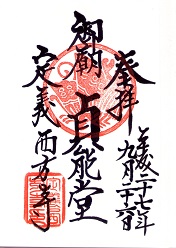 奉拝
平成二十七年
九月二十六日
御朝
貞能堂
定義西方寺